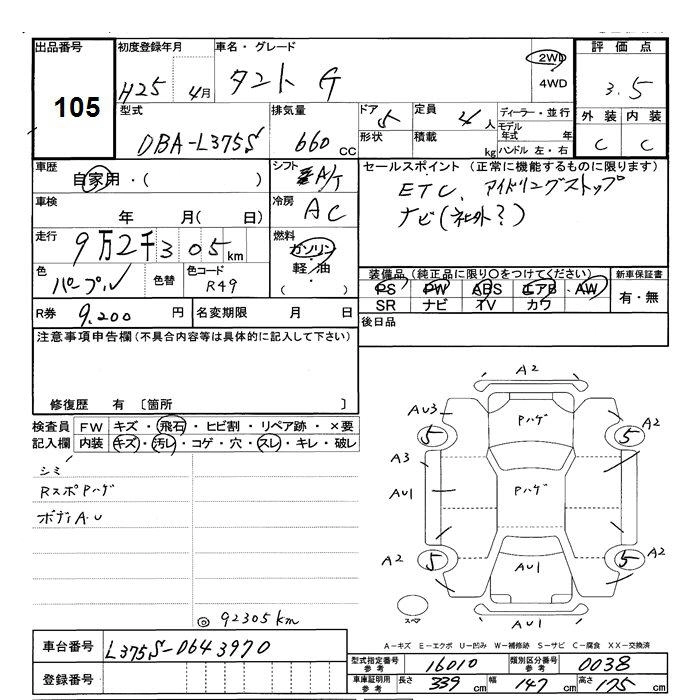 出品番号
105
初度登録年月
H25 4月
車名・グレード
タント G
2WD
4WD
評価点
3.5
外装 内装
C C
型式
DBA-L375S
排気量
660 CC
ドア 5
形状
定員 4 人
積載 kg
ディーラー・並行
モデル年式 年
ハンドル 左・右
車歴
自家用・( )
シフト
A/T
車検
年 月( 日)
冷房
AC
走行
9万2千305km
燃料
ガソリン
・
軽・油
( )
色
パープル
色替
色コード
R49
セールスポイント (正常に機能するものに限ります)
ETC、アイドリングストップ
ナビ(社外?)
装備品(純正品に限り○をつけてください)
PS PW ABS エアB AW
SR ナビ TV カワ
新車保証書
有・無
R券 9,200 円
名変期限 月 日
後日品
注意事項申告欄(不具合内容等は具体的に記入して下さい)
修復歴 有 〔箇所 〕
検査員
記入欄
FW キズ・飛石・ヒビ割・リペア跡・×要
内装 キズ・汚レ・コゲ・穴・スレ・キレ・破レ
シミ
RスポPハゲ
ボディA.U
◎92305km
A2
AU3
Pハゲ
A2
5
5
A3
AU1
Pハゲ
A2
5
5
A2
AU1
スペア
AU1
A-キズ E-エクボ U-凹み W-補修跡 S-サビ C-腐食 XX-交換済
車台番号
L375S-0643970
登録番号
型式指定番号
参考
16010
類別区分番号
参考
0038
車庫証明用
参考
長さ 339 cm
幅 147 cm
高さ 175 cm